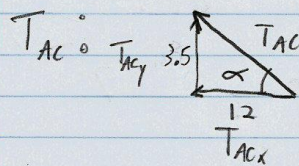 T_AC : T_ACy 3.5 α T_AC
12
T_ACx